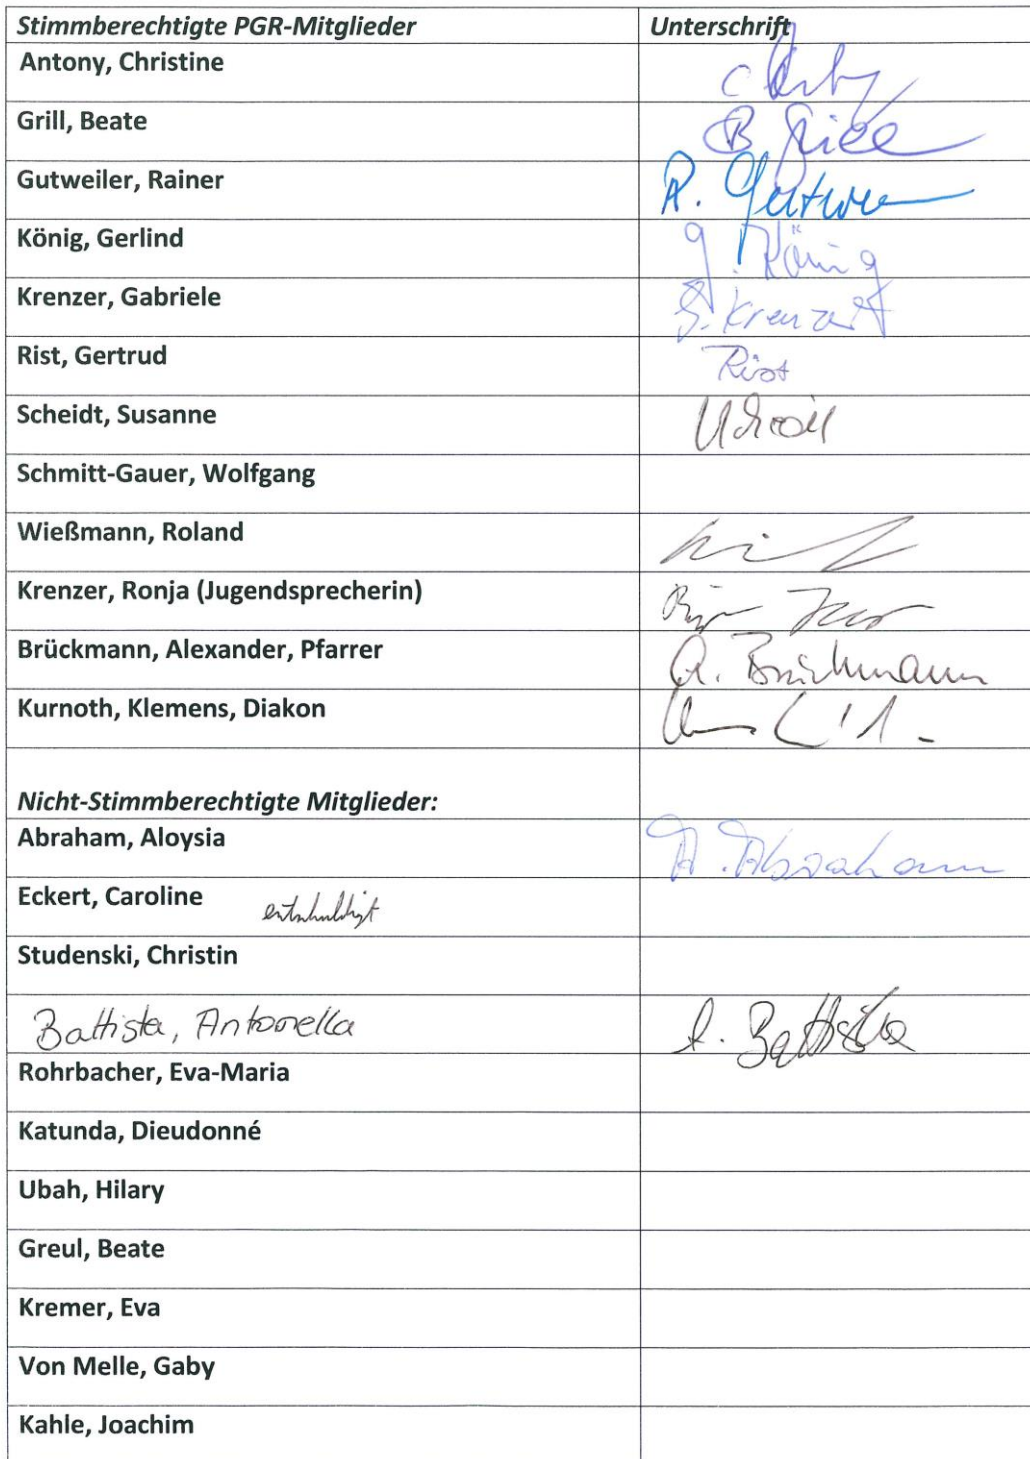 Stimmberechtigte PGR-Mitglieder Unterschrift
Antony, Christine
Grill, Beate B Grill
Gutweiler, Rainer R.
König, Gerlind g. König
Krenzer, Gabriele G. Krenzer
Rist, Gertrud Rist
Scheidt, Susanne
Schmitt-Gauer, Wolfgang
Wießmann, Roland
Krenzer, Ronja (Jugendsprecherin)
Brückmann, Alexander, Pfarrer A. Brückmann
Kurnoth, Klemens, Diakon
Nicht-Stimmberechtigte Mitglieder:
Abraham, Aloysia A. Abraham
Eckert, Caroline entschuldigt
Studenski, Christin
Battista, Antonella A. Battista
Rohrbacher, Eva-Maria
Katunda, Dieudonné
Ubah, Hilary
Greul, Beate
Kremer, Eva
Von Melle, Gaby
Kahle, Joachim